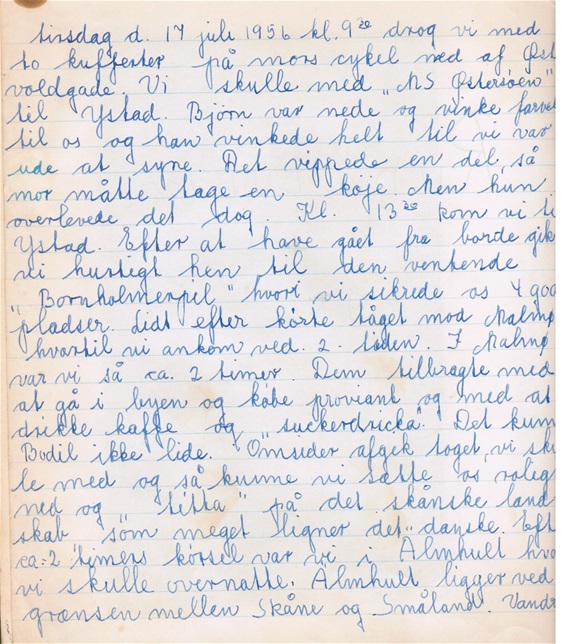 tirsdag d. 17 juli 1956 kl. 9²⁰ drog vi med
to kufferter på mors cykel ned af Øst
voldgade. Vi skulle med "MS Østersøen"
til Ystad. Bjørn var nede og vinke farvel
til os og han vinkede helt til vi var
ude at syne. Det vippede en del, så
mor måtte tage en køje. Men hun
overlevede det dog. Kl. 13²⁰ kom vi ti
Ystad. Efter at have gået fra borde gik
vi hurtigt hen til den ventende
"Bornholmerpil" hvori vi sikrede os 4 god
pladser. Lidt efter kørte tåget mod Malmø
hvortil vi ankom ved 2-tiden. I Malmø
var vi så ca. 2 timer. Dem tilbragte med
at gå i byen og købe proviant og med at
drikke kaffe og "suckerdricka". Det kun
Bodil ikke lide. Omsider afgik toget, vi sku
le med og så kunne vi sætte os rolig
ned og "titta" på det skånske land
skab som meget ligner det danske. Eft
ca. 2 timers kørsel var vi i Älmhult hvo
vi skulle overnatte. Älmhult ligger ved
grænsen mellem Skåne og Småland. Vandr